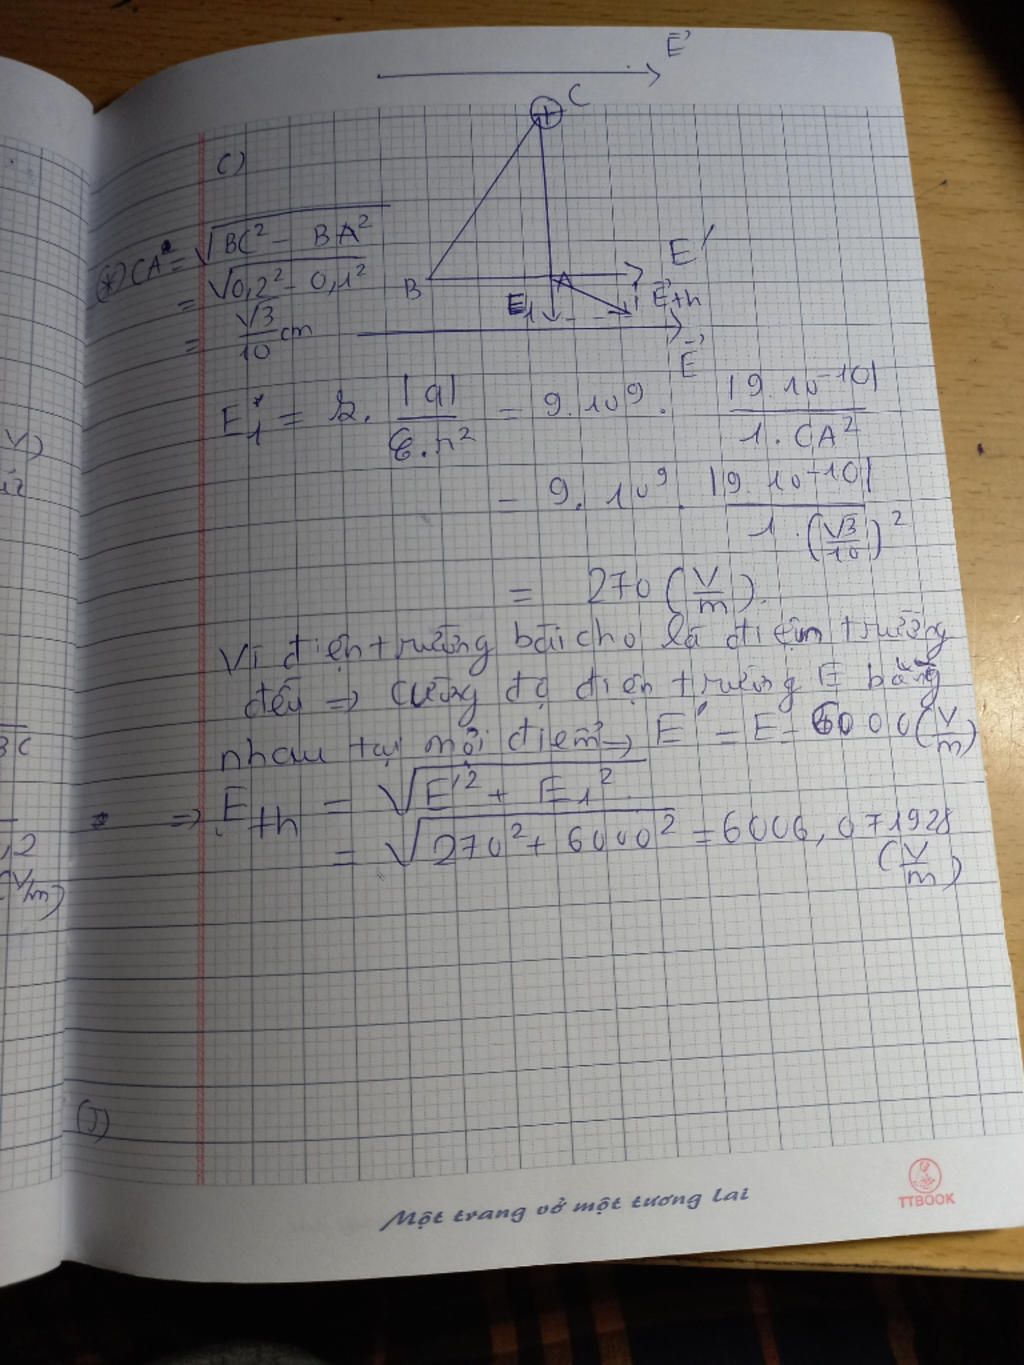 E
C
C)
(*) CA = √BC² - BA²
= √0,2² - 0,1²
= √3/10 cm
B
A
E'
E1
Eth
E
E1 = k. |q|/ε.r² = 9.10⁹. |9.10⁻¹⁰|/1.CA²
= 9.10⁹. |9.10⁻¹⁰|/1.(√3/10)²
= 270 (V/m).
Vì điện trường bài cho là điện trường
đều => cường độ điện trường E bằng
nhau tại mọi điểm => E' = E = 6000 (V/m)
=> Eth = √E'² + E1²
= √270² + 6000² = 6006,071928
(V/m)
V)
BC
,2
(V/m)
(J)
Một trang vở một tương lai
TTBOOK